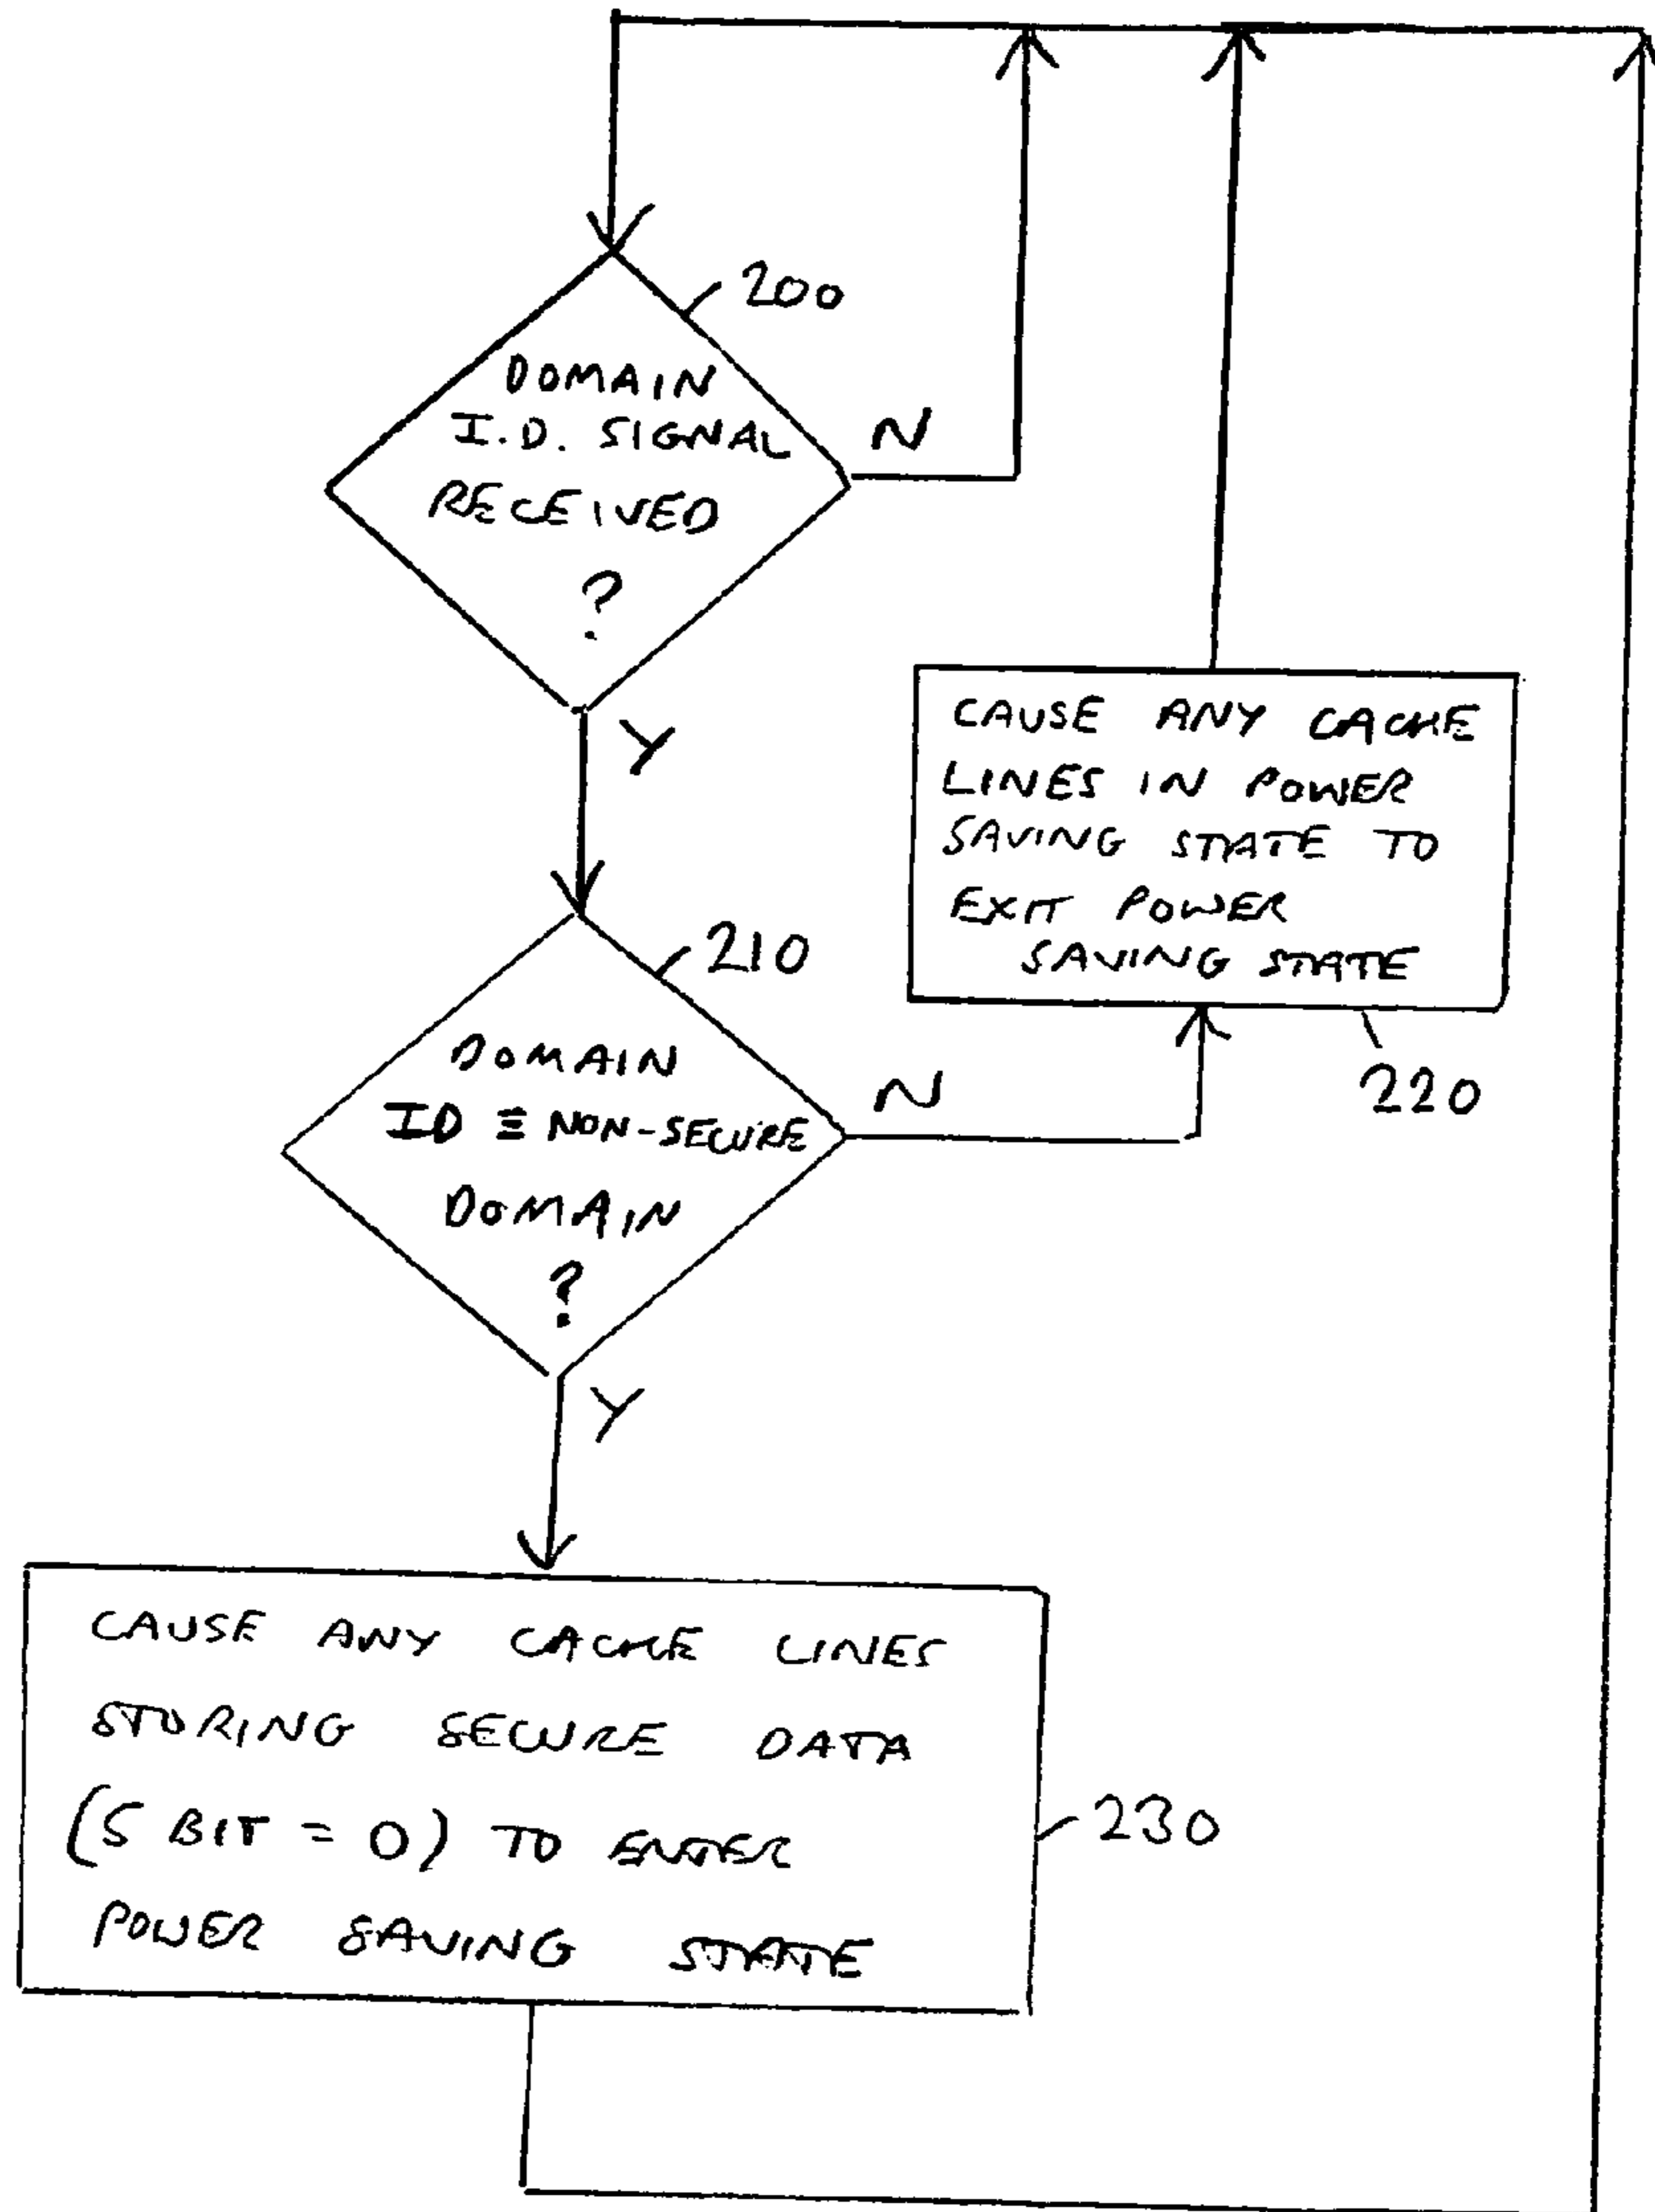 200
DOMAIN
I.D. SIGNAL
RECEIVED
?
N
Y
CAUSE ANY CACHE
LINES IN POWER
SAVING STATE TO
EXIT POWER
SAVING STATE
220
210
DOMAIN
ID ≡ NON-SECURE
DOMAIN
?
N
Y
CAUSE ANY CACHE LINES
STORING SECURE DATA
(S BIT = 0) TO ENTER
POWER SAVING STATE
230